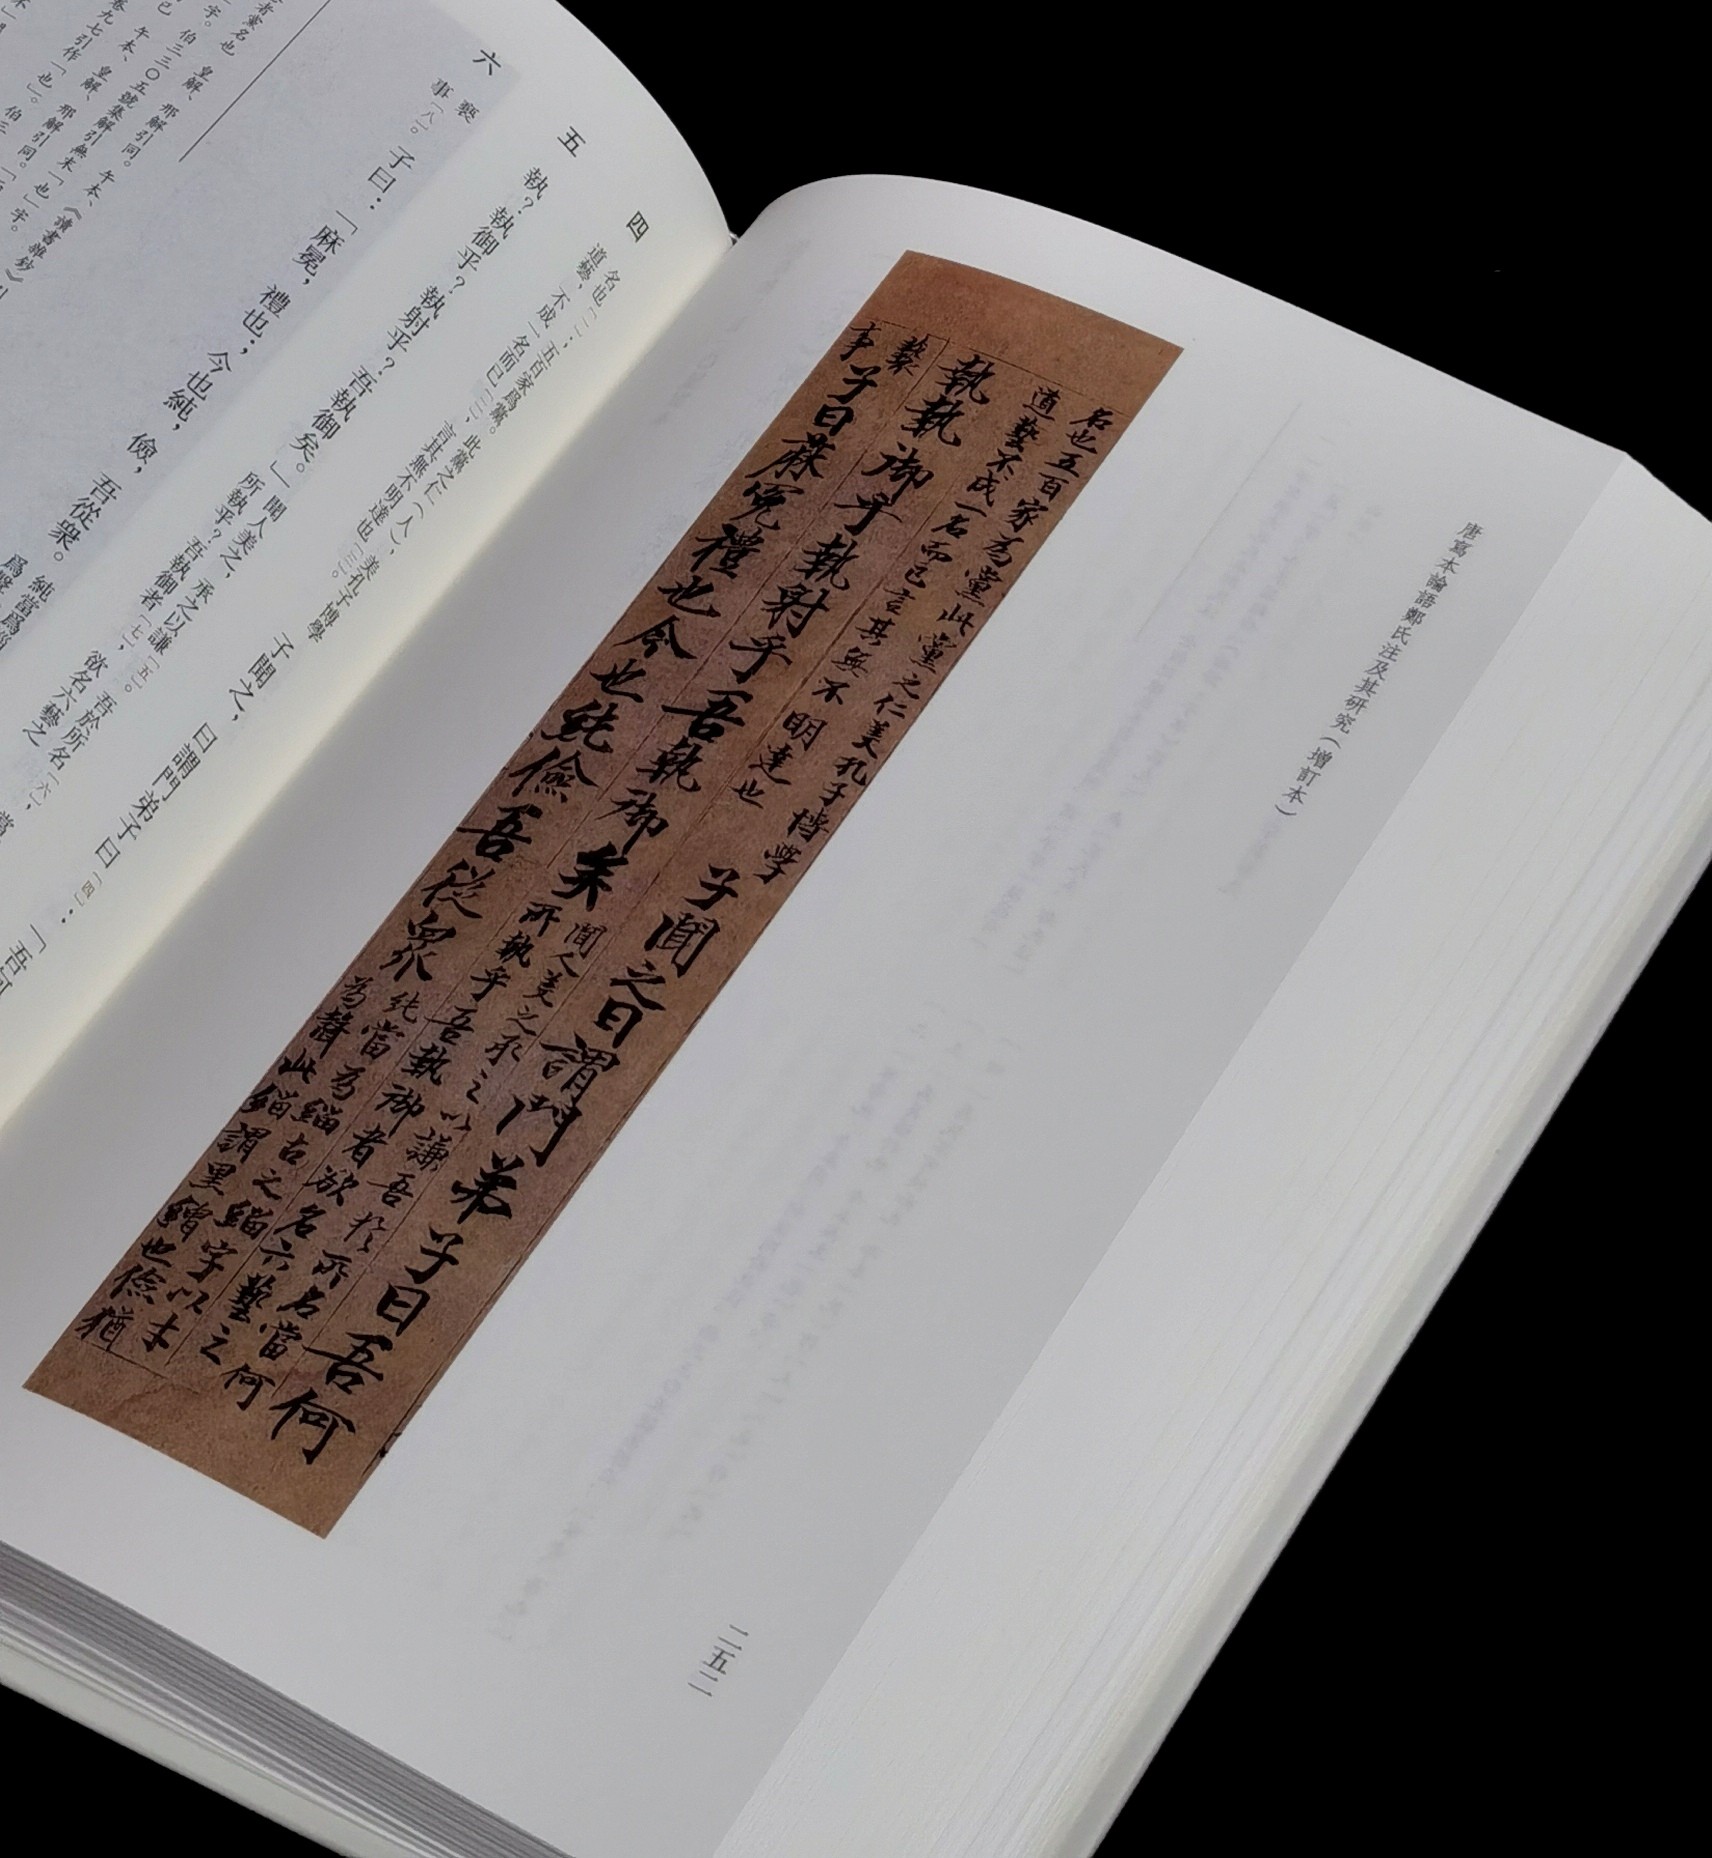 唐寫本論語鄭氏注及其研究（增訂本）
名也五百家為黨此黨之仁美孔子博學
道藝不成一名而已言其無不明達也
子聞之曰謂門弟子曰吾何
執執御乎執射乎吾執御矣
聞人美之承之以謙吾於所名當何
所執乎吾執御者欲名六藝之
褻
事
子曰麻冕禮也今也純儉吾從眾
純當為緇古之緇字以才
為聲此緇謂黑繒也儉猶
二五二
四
名也〔一〕；五百家爲黨。此黨之仁（人），美孔子博學
道藝，不成一名而已〔二〕，言其無不明達也〔三〕。
子聞之，曰謂門弟子曰〔四〕：「吾何
五
執？執御乎？執射乎？吾執御矣。」
聞人美之，承之以謙〔五〕。吾於所名〔六〕，當
所執乎？吾執御者〔七〕，欲名六藝之
六
褻
事〔八〕。
子曰：「麻冕，禮也；今也純，儉，吾從衆。
純當爲緇
爲聲
者黨名也 皇解、邢解引同。午本、《讀書雜鈔》引
字。伯三三〇五號集解引無末「也」字。
已 午本、皇解、邢解引同。「
卷九七引作「也」。伯三